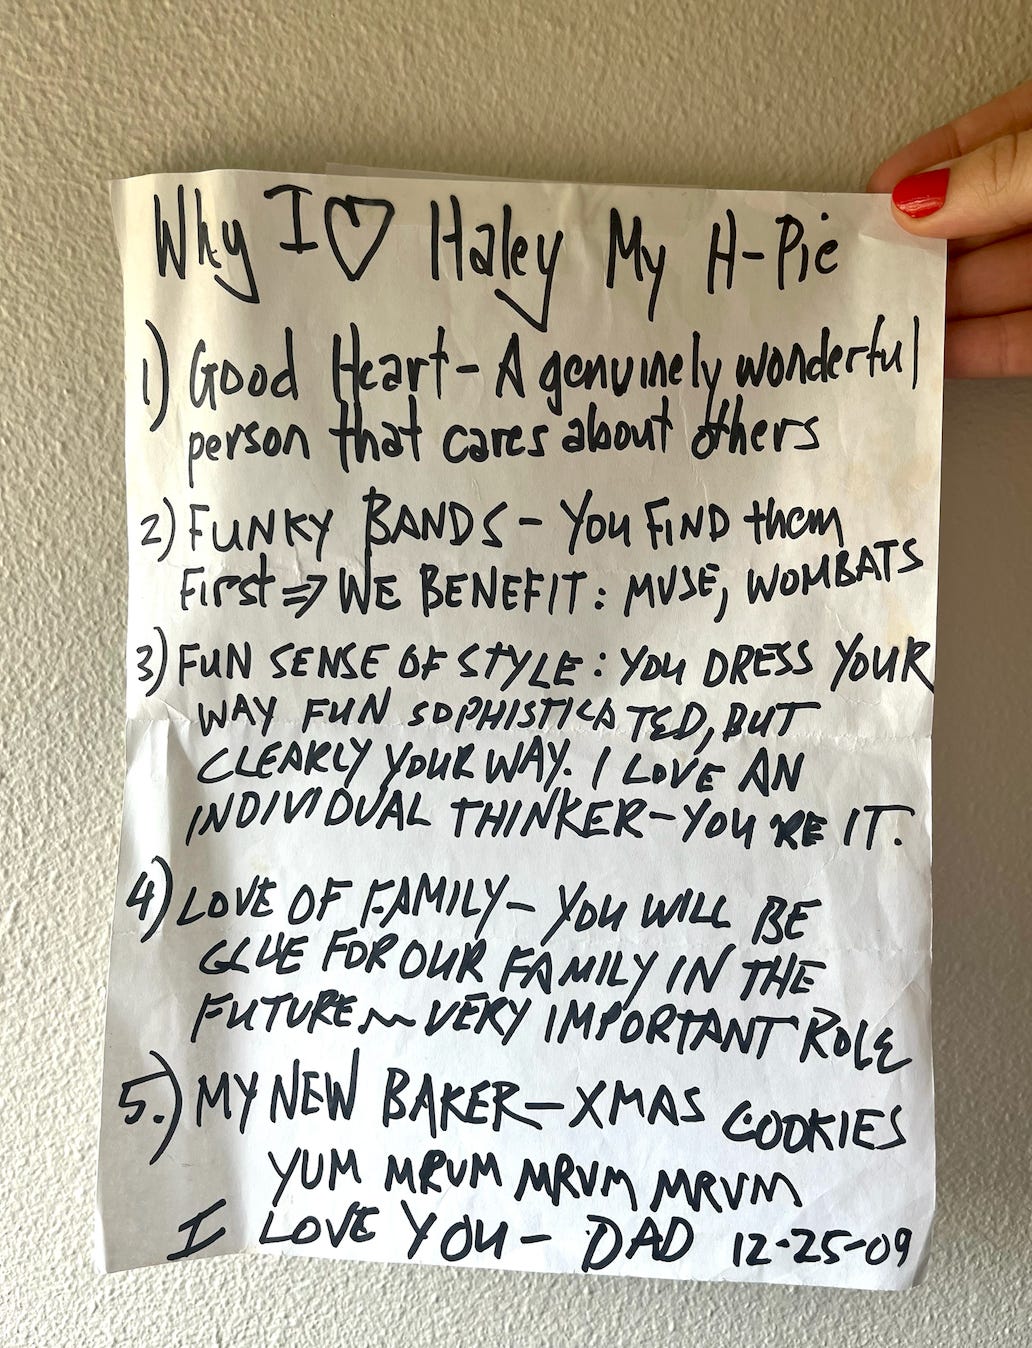 Why I ♡ Haley My H-Pie
1) Good Heart - A genuinely wonderful
person that cares about others
2) FUNKY BANDS - You FIND them
First ⇒ WE BENEFIT: MUSE, WOMBATS
3) FUN SENSE OF STYLE: YOU DRESS YOUR
WAY FUN SOPHISTICATED, BUT
CLEARLY YOUR WAY. I LOVE AN
INDIVIDUAL THINKER - YOU'RE IT.
4) LOVE OF FAMILY - YOU WILL BE
GLUE FOR OUR FAMILY IN THE
FUTURE ~ VERY IMPORTANT ROLE
5.) MY NEW BAKER - XMAS COOKIES
YUM MRUM MRUM MRUM
I LOVE YOU - DAD 12-25-09